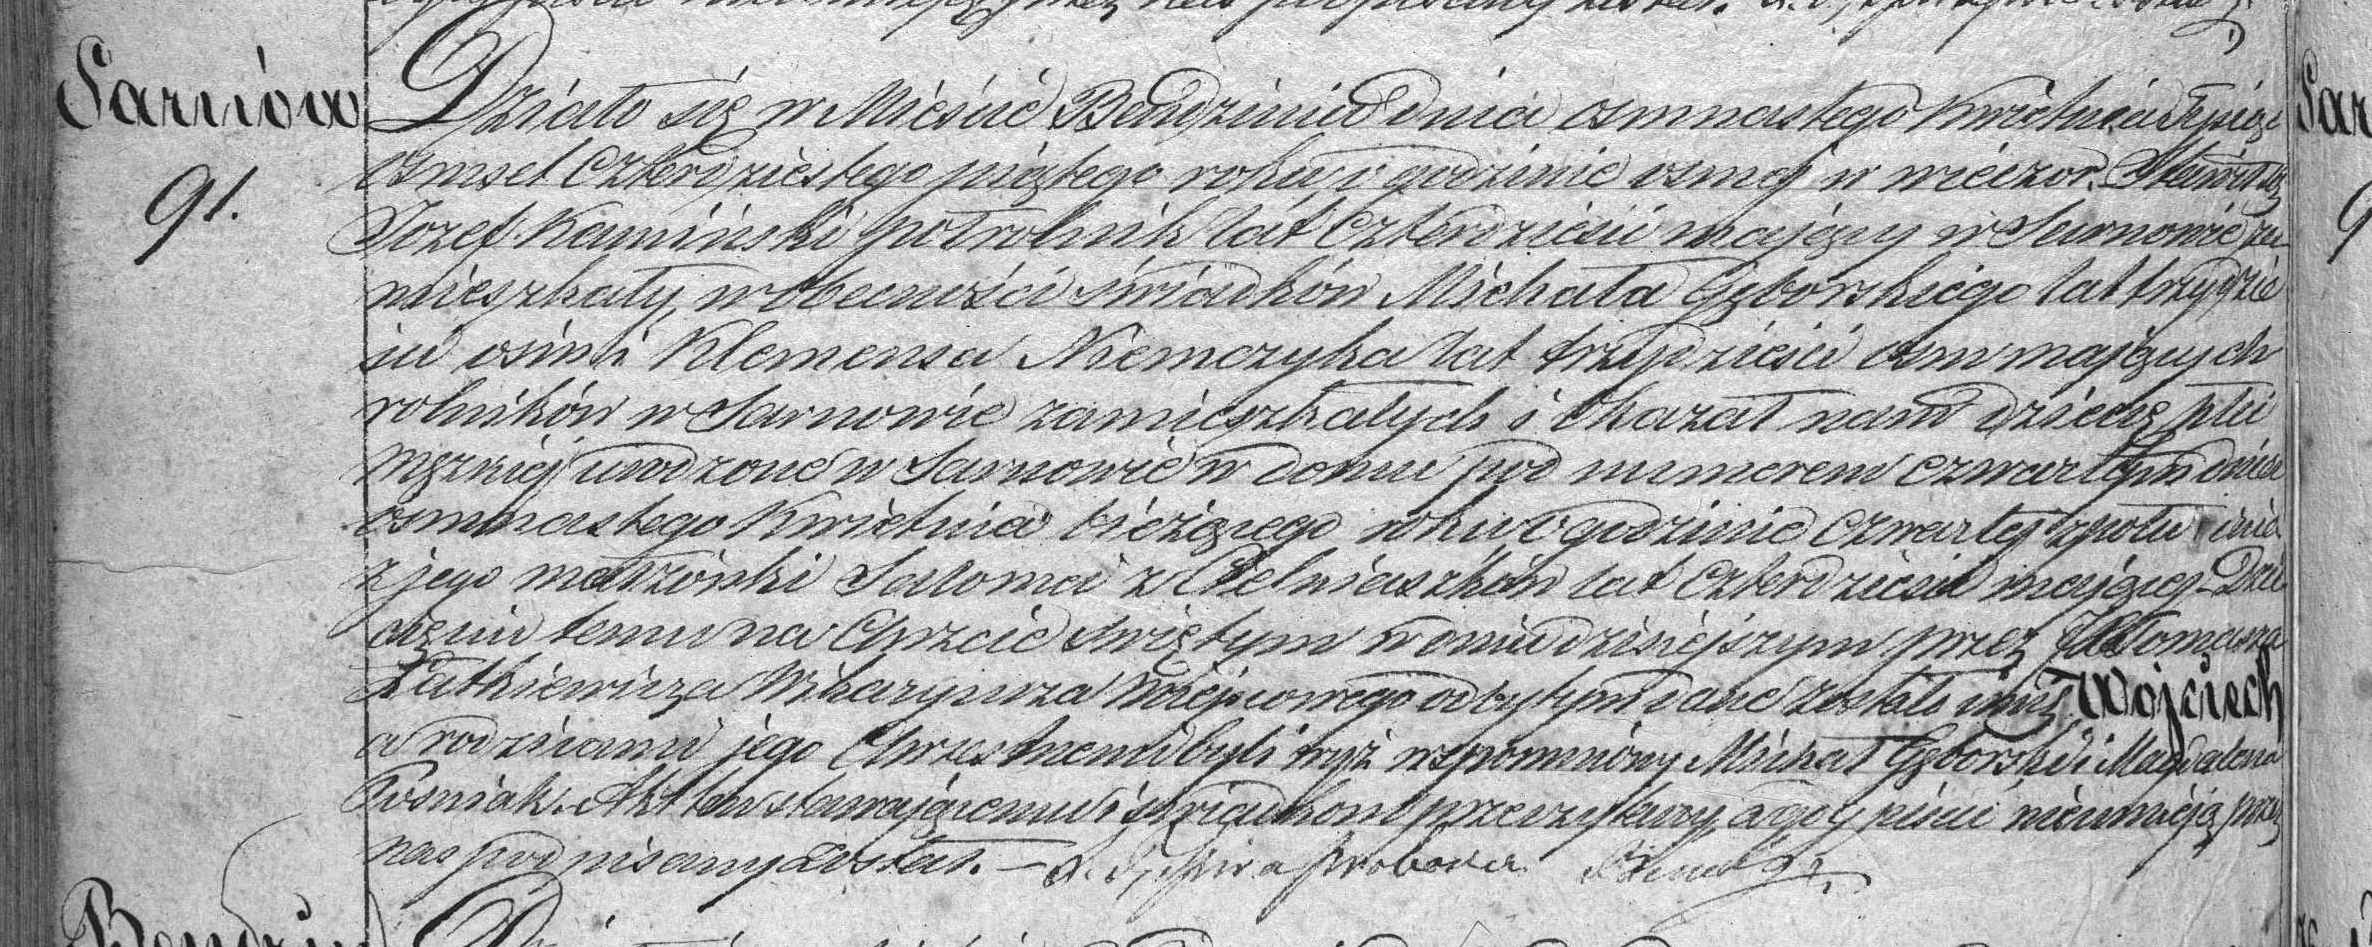 Sarnów
91.
Działo się w Mieście Bendzinie dnia osmnastego Kwietnia Tysiąc
osmset czterdziestego piątego roku o godzinie osmej w wieczor. Stawił się
Jozef Kamiński półrolnik lat czterdzieści mający w Sarnowie za-
mieszkały, w obecności świadków Michała Gęborskiego lat trzydzie
ści osim i Klemensa Niemczyka lat trzydzieści osm mających
rolników w Sarnowie zamieszkałych i okazał nam dziecię płci
męzkiej urodzone w Sarnowie w domu pod numerem czwartym dnia
osmnastego Kwietnia bieżącego roku o godzinie czwartej z połu dnia
z jego małżonki Salomei z lat czterdzieści mającej - Dzie
cięciu temu na Chrzcie świętym w dniu dzisiejszym przez Tomasza
Łatkiewicza Wikaryusza miejscowego odbytym dane zostało imię Wojciech
a rodzicami jego Chrzestnemi byli wyż wspomniony Michał Gęborski i Magdalena
Pośniak. Akt ten stawającemu i świadkom przeczytany, a gdy pisać nieumieją przez
nas podpisany został. —
Bendzin